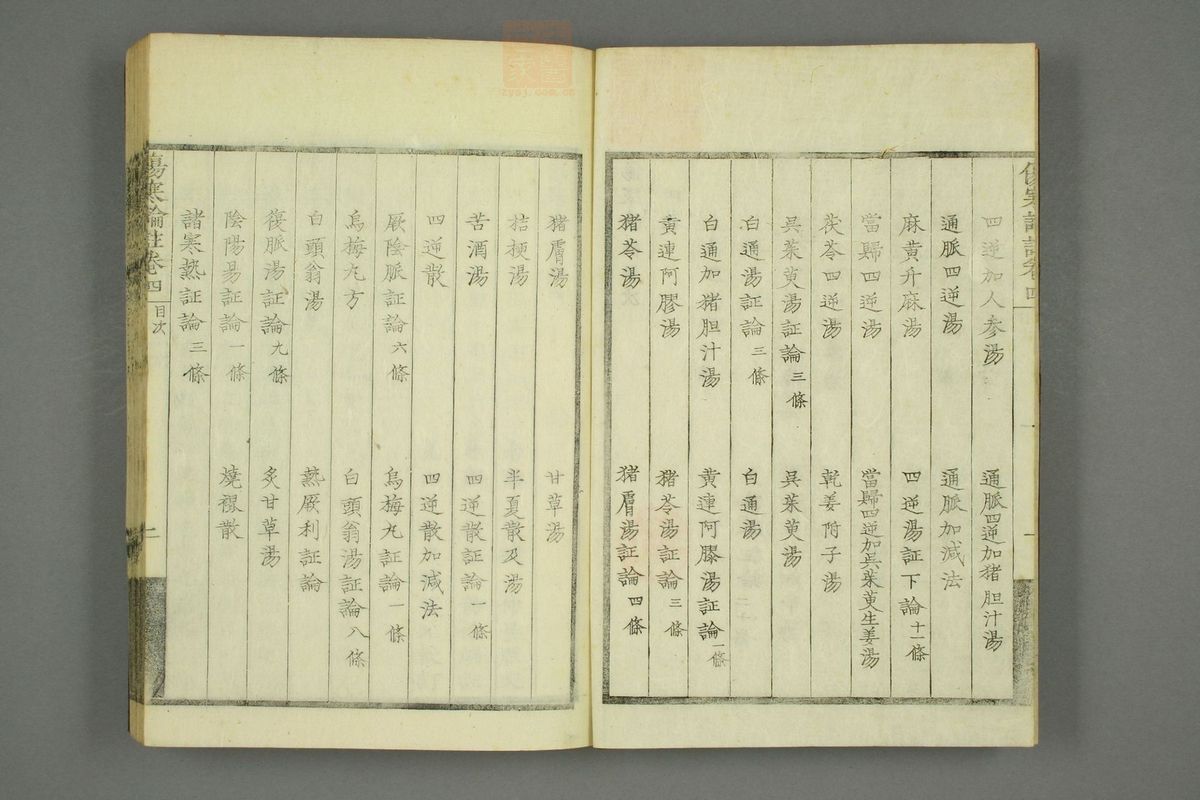 四逆加人参湯　通脈四逆加猪胆汁湯
通脈四逆湯　通脈加減法
麻黄升麻湯　四逆湯証下論十一條
當歸四逆湯　當歸四逆加吳茱萸生姜湯
茯苓四逆湯　乾姜附子湯
吳茱萸湯証論三條　吳茱萸湯
白通湯証論三條　白通湯
白通加猪胆汁湯　黄連阿膠湯証論一條
黄連阿膠湯　猪苓湯証論三條
猪苓湯　猪膚湯証論四條
猪膚湯　甘草湯
桔梗湯　半夏散及湯
苦酒湯　四逆散証論一條
四逆散　四逆散加減法
厥陰脈証論六條　烏梅丸証論一條
烏梅丸方　白頭翁湯証論八條
白頭翁湯　熱厥利証論
復脈湯証論九條　炙甘草湯
陰陽易証論一條　燒裩散
諸寒熱証論三條
傷寒論註卷四　目次
zysj.com.cn